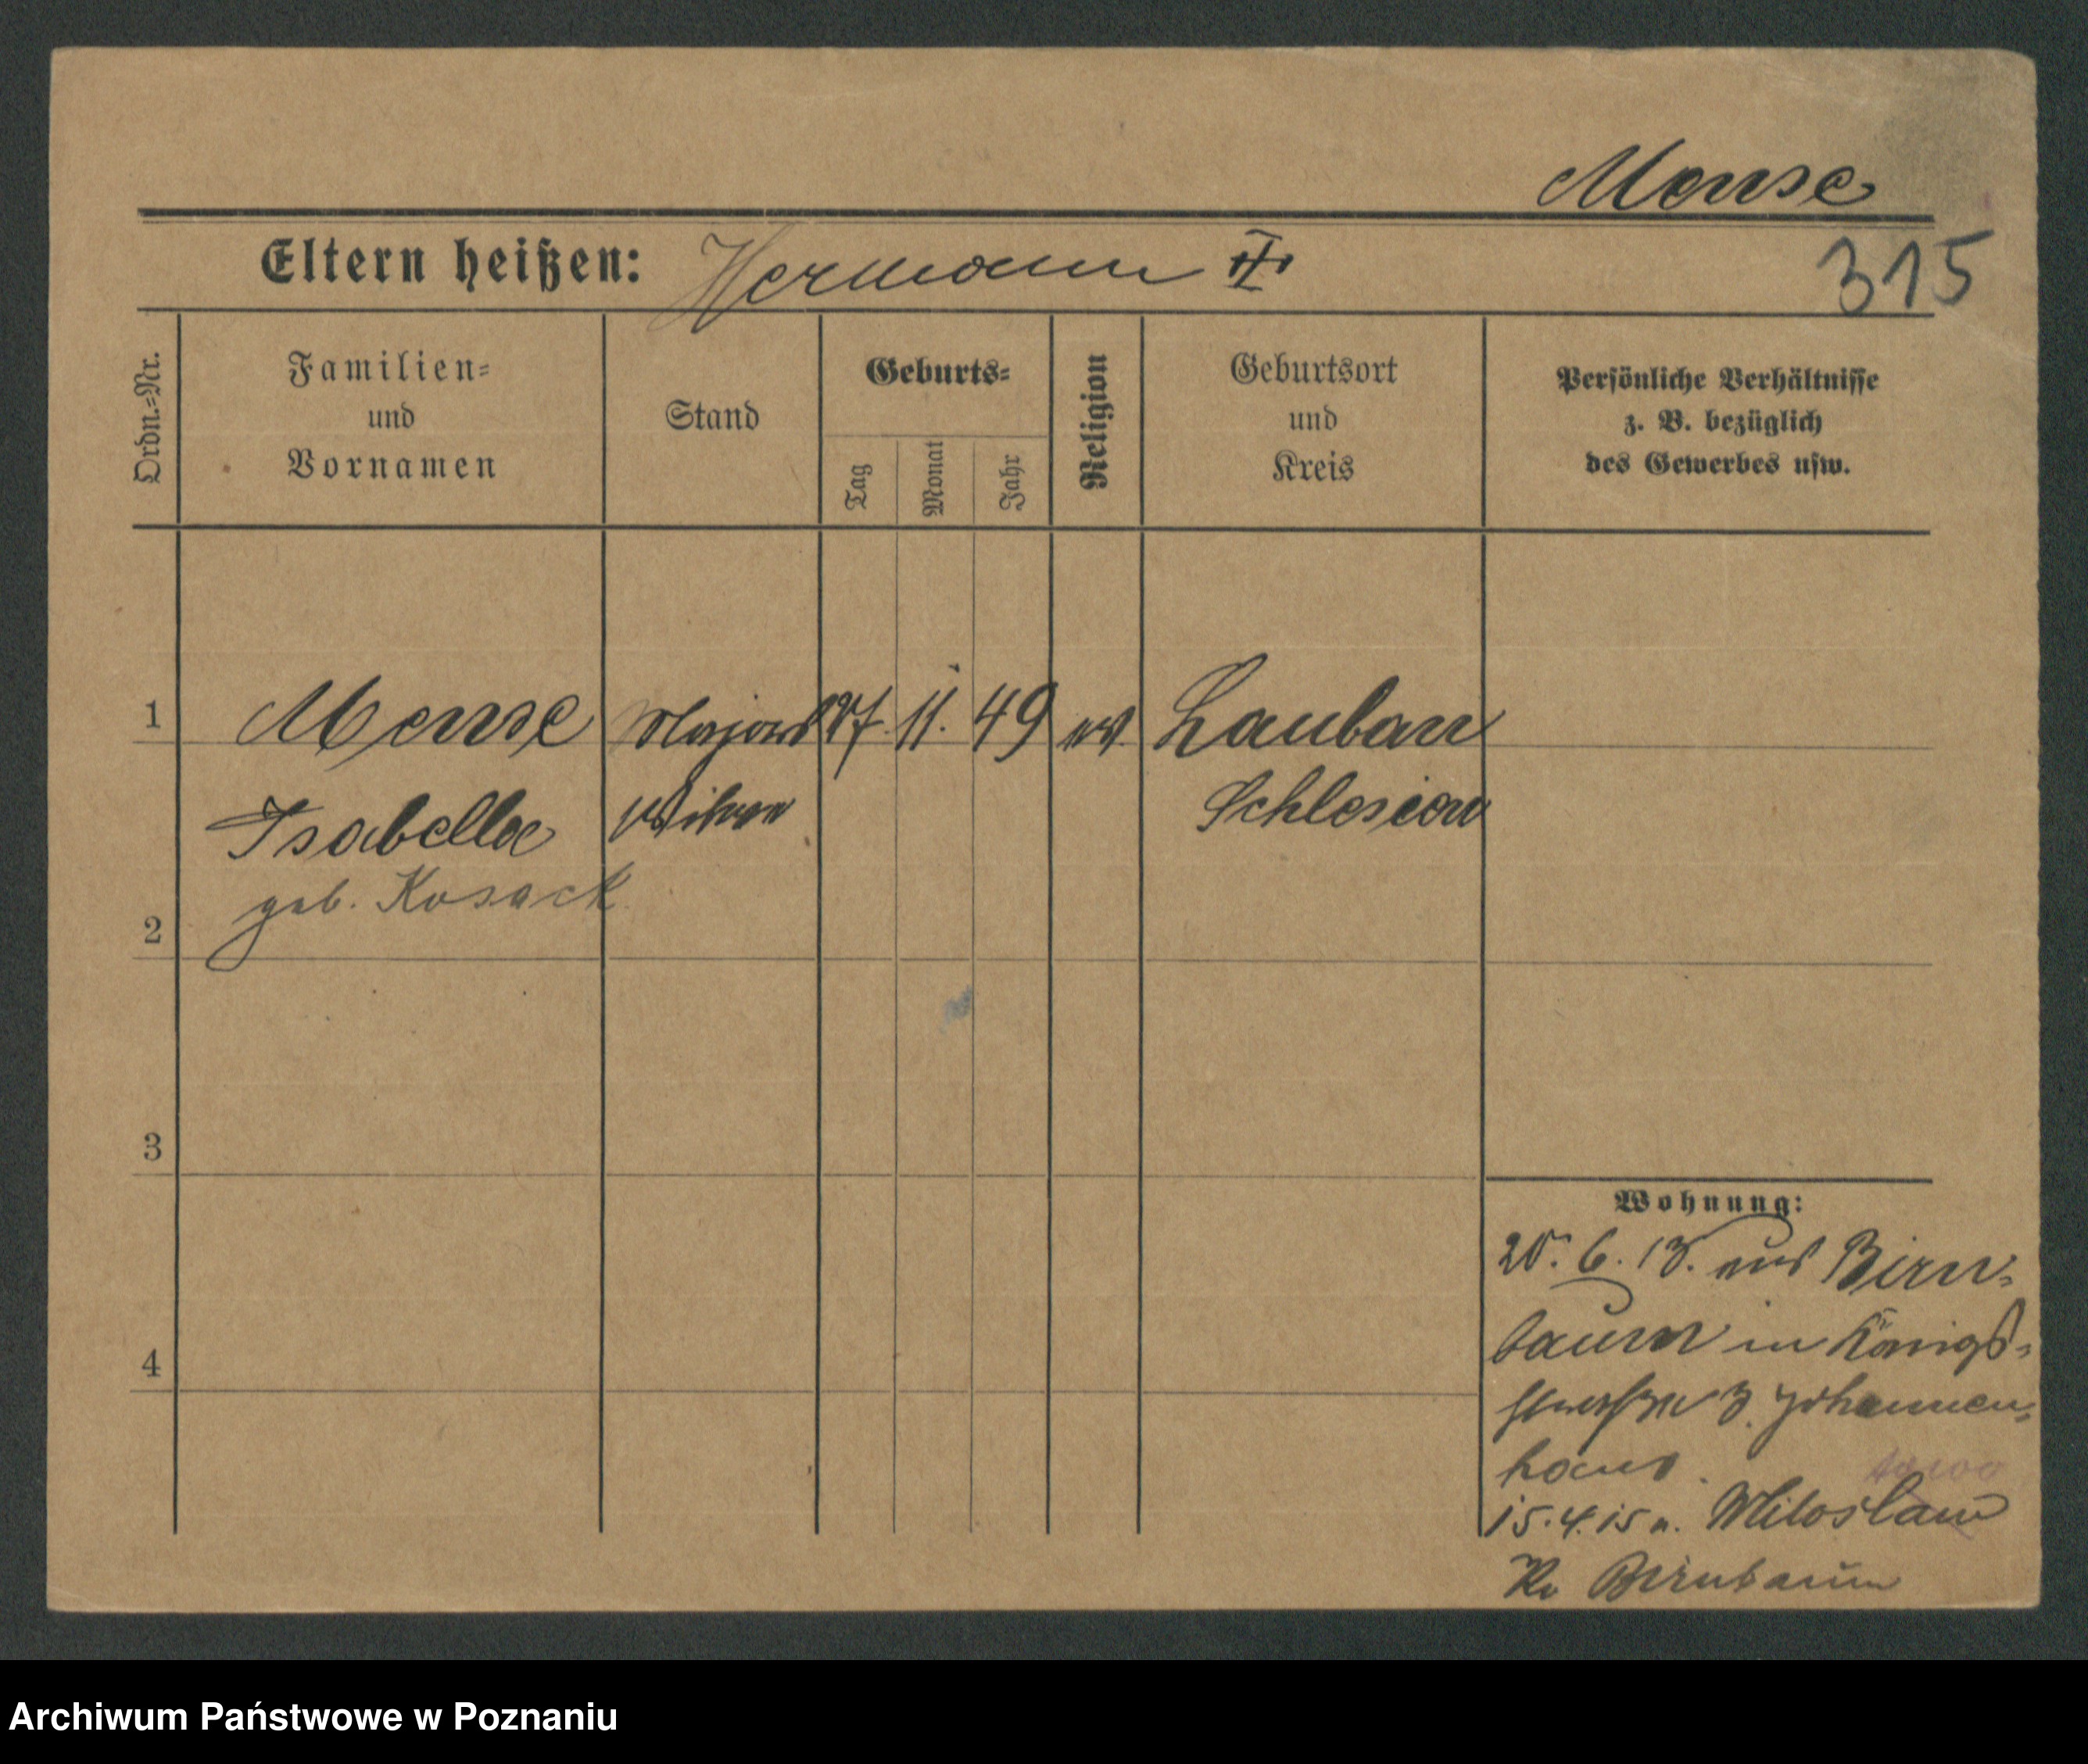 Mense
Eltern heißen: Hermann
315
Ordn.-Nr.
Familien-
und
Vornamen
Stand
Geburts-
Tag
Monat
Jahr
Religion
Geburtsort
und
Kreis
Persönliche Verhältnisse
z. B. bezüglich
des Gewerbes usw.
1 Mense Majors 27. 11. 49 ev. Lauban
Isabella Witwe Schlesien
geb. Kosack
2
3
4
Wohnung:
6. 13. aus Birn-
baum in Königs-
3. Johannen-
haus.
15.4.15 n. Miloslaw
Kr Birnbaum
Archiwum Państwowe w Poznaniu